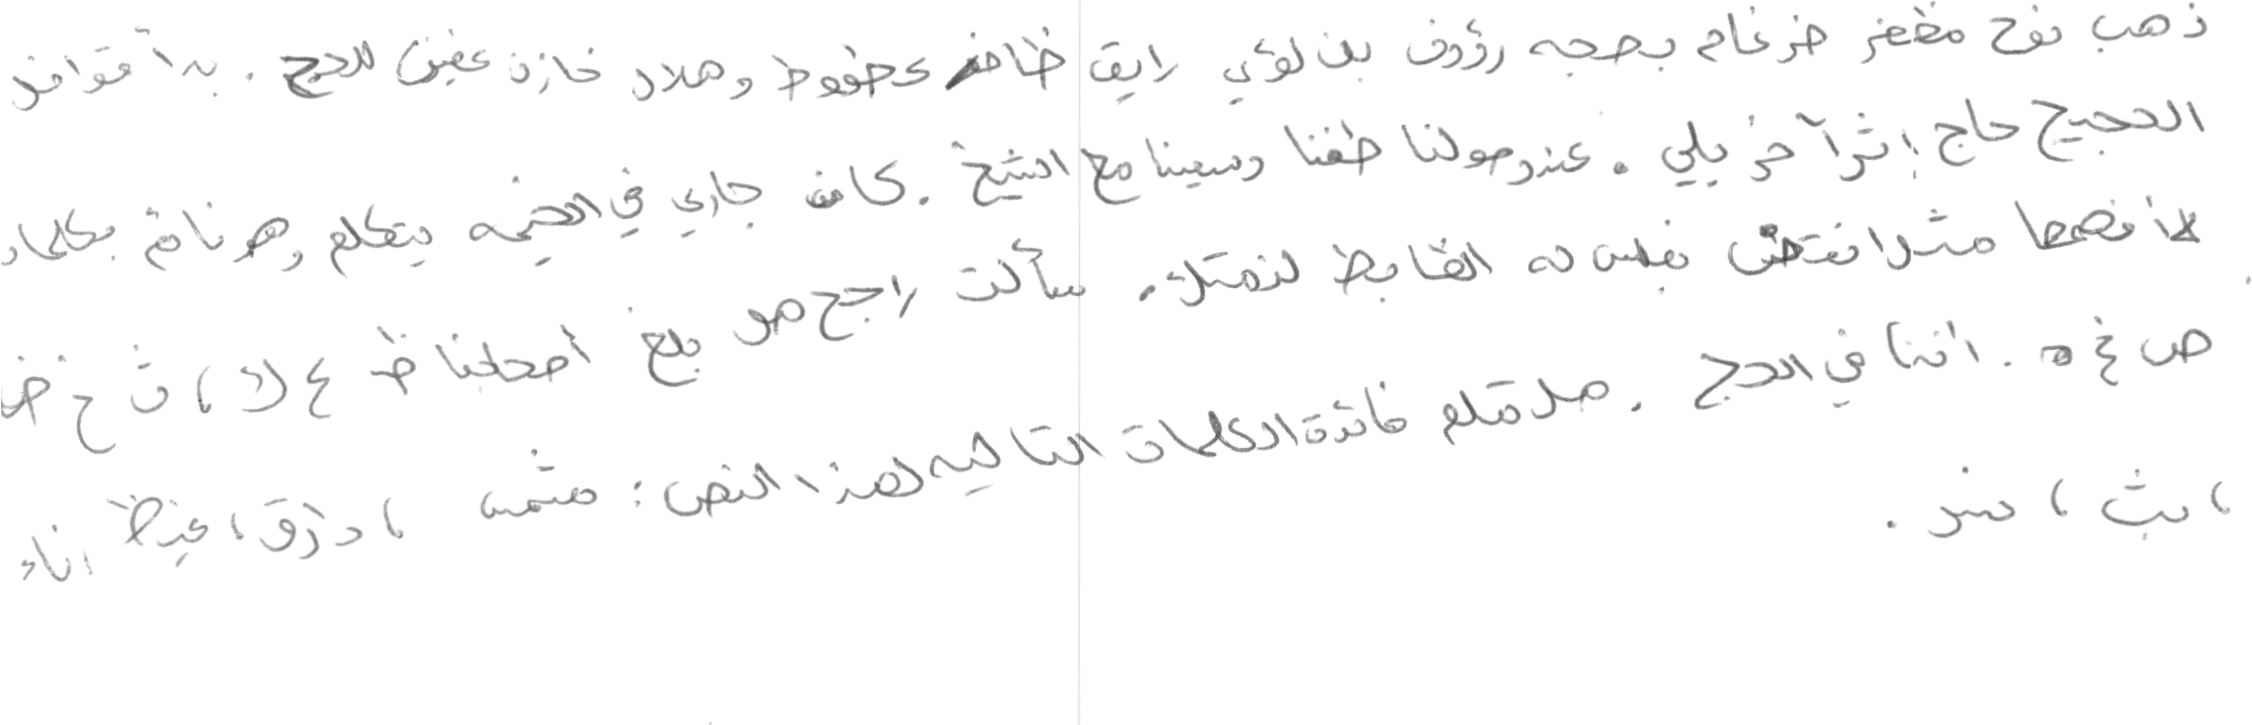 ذهب نوح مظفر ضرغام بصحبه رؤوف بن لؤي رايق ظافر محظوظ وهلال خازن عفيف للحج . بدأ قوافل
الحجيج حاج إثر آخر يلي . عند وصولنا طفنا وسعينا مع الشيخ . كان جاري في الخيمه يتكلم وهو نائم بكلمات
لا أفهمها مثلا نفس له القابظ لزمتك . سألت راجح هو بلغ أصحابنا ظ ع لا ، ث خ ض
ص غ ه . اننا في الحج . هل تعلم فائدة الكلمات التاليه لهذا النص : مشمس ، درزق ، غيظ إناء
، بث ،